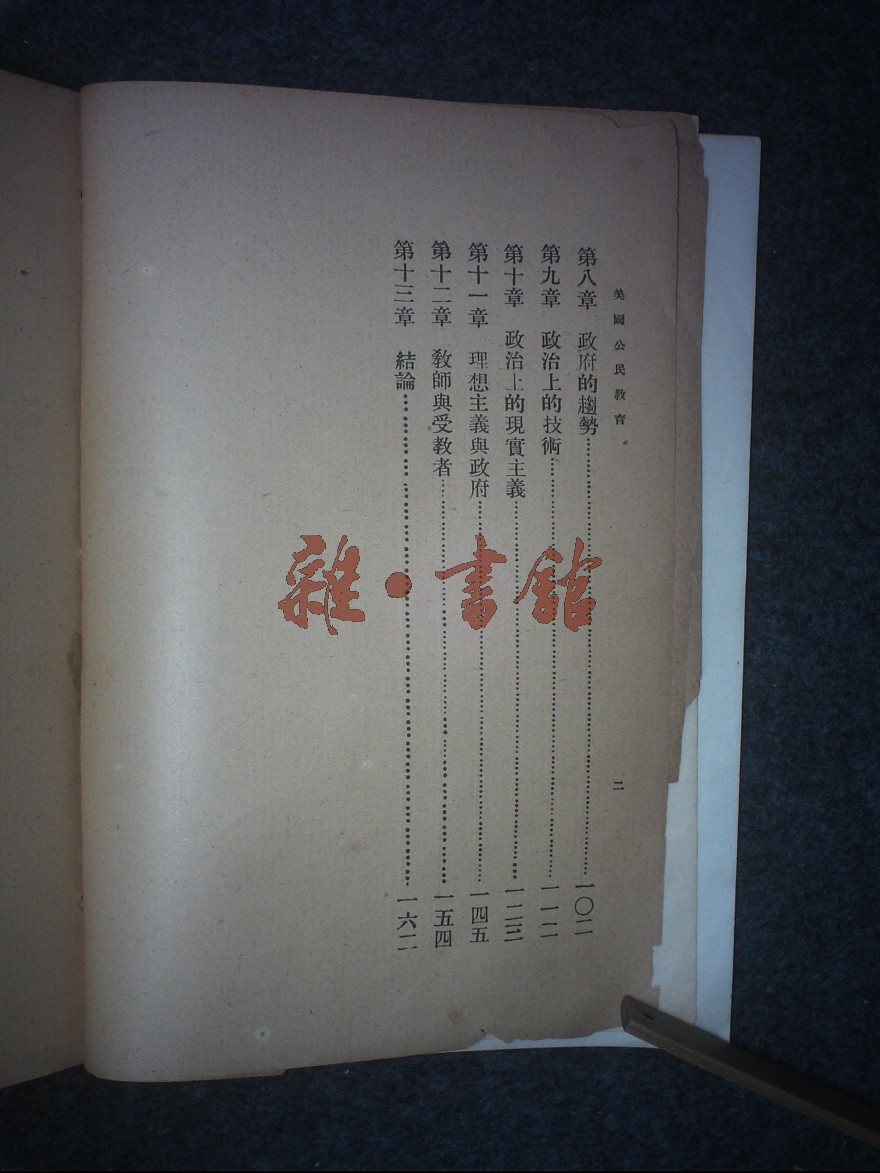 美國公民教育
二
第八章 政府的趨勢……一〇二
第九章 政治上的技術……一一二
第十章 政治上的現實主義……一二三
第十一章 理想主義與政府……一四五
第十二章 教師與受教者……一五四
第十三章 結論……一六二
雜·書館